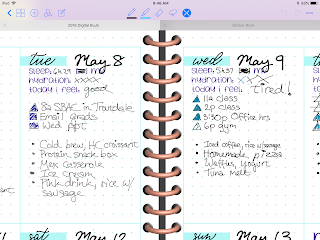 iPad
9:46 AM
93%
2018 Digital BuJo
tue May 8
sleep: 6h29
hydration: XXXX
today i feel: good
8a SBAC in Troutdale
Email grads
Wed ppt
Cold brew, HC croissant
Protein snack box
Mex casserole
Ice cream
Pink drink, rice w/
sausage
wed May 9
sleep: 5h37
hydration: XXXX
today i feel: Tired!
11a class
2p class
3:30p Office hrs
6p gym
Iced coffee, rice w/sausage
Homemade pizza
Waffles, yogurt
Tuna melt
sat May 12
sun May 13